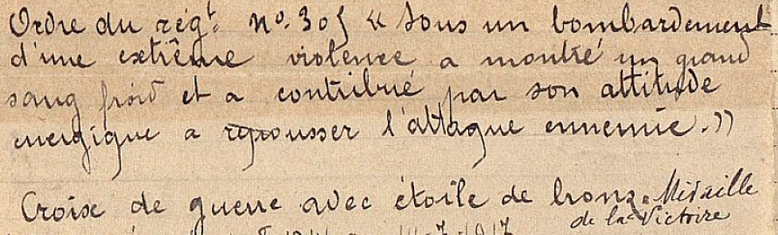 Ordre du régt. no. 305 « Sous un bombardement
d'une extrême violence a montré un grand
sang froid et a contribué par son attitude
energique a repousser l'attaque ennemie. »
Croise de guerre avec étoile de bronze. Médaille
de la Victoire